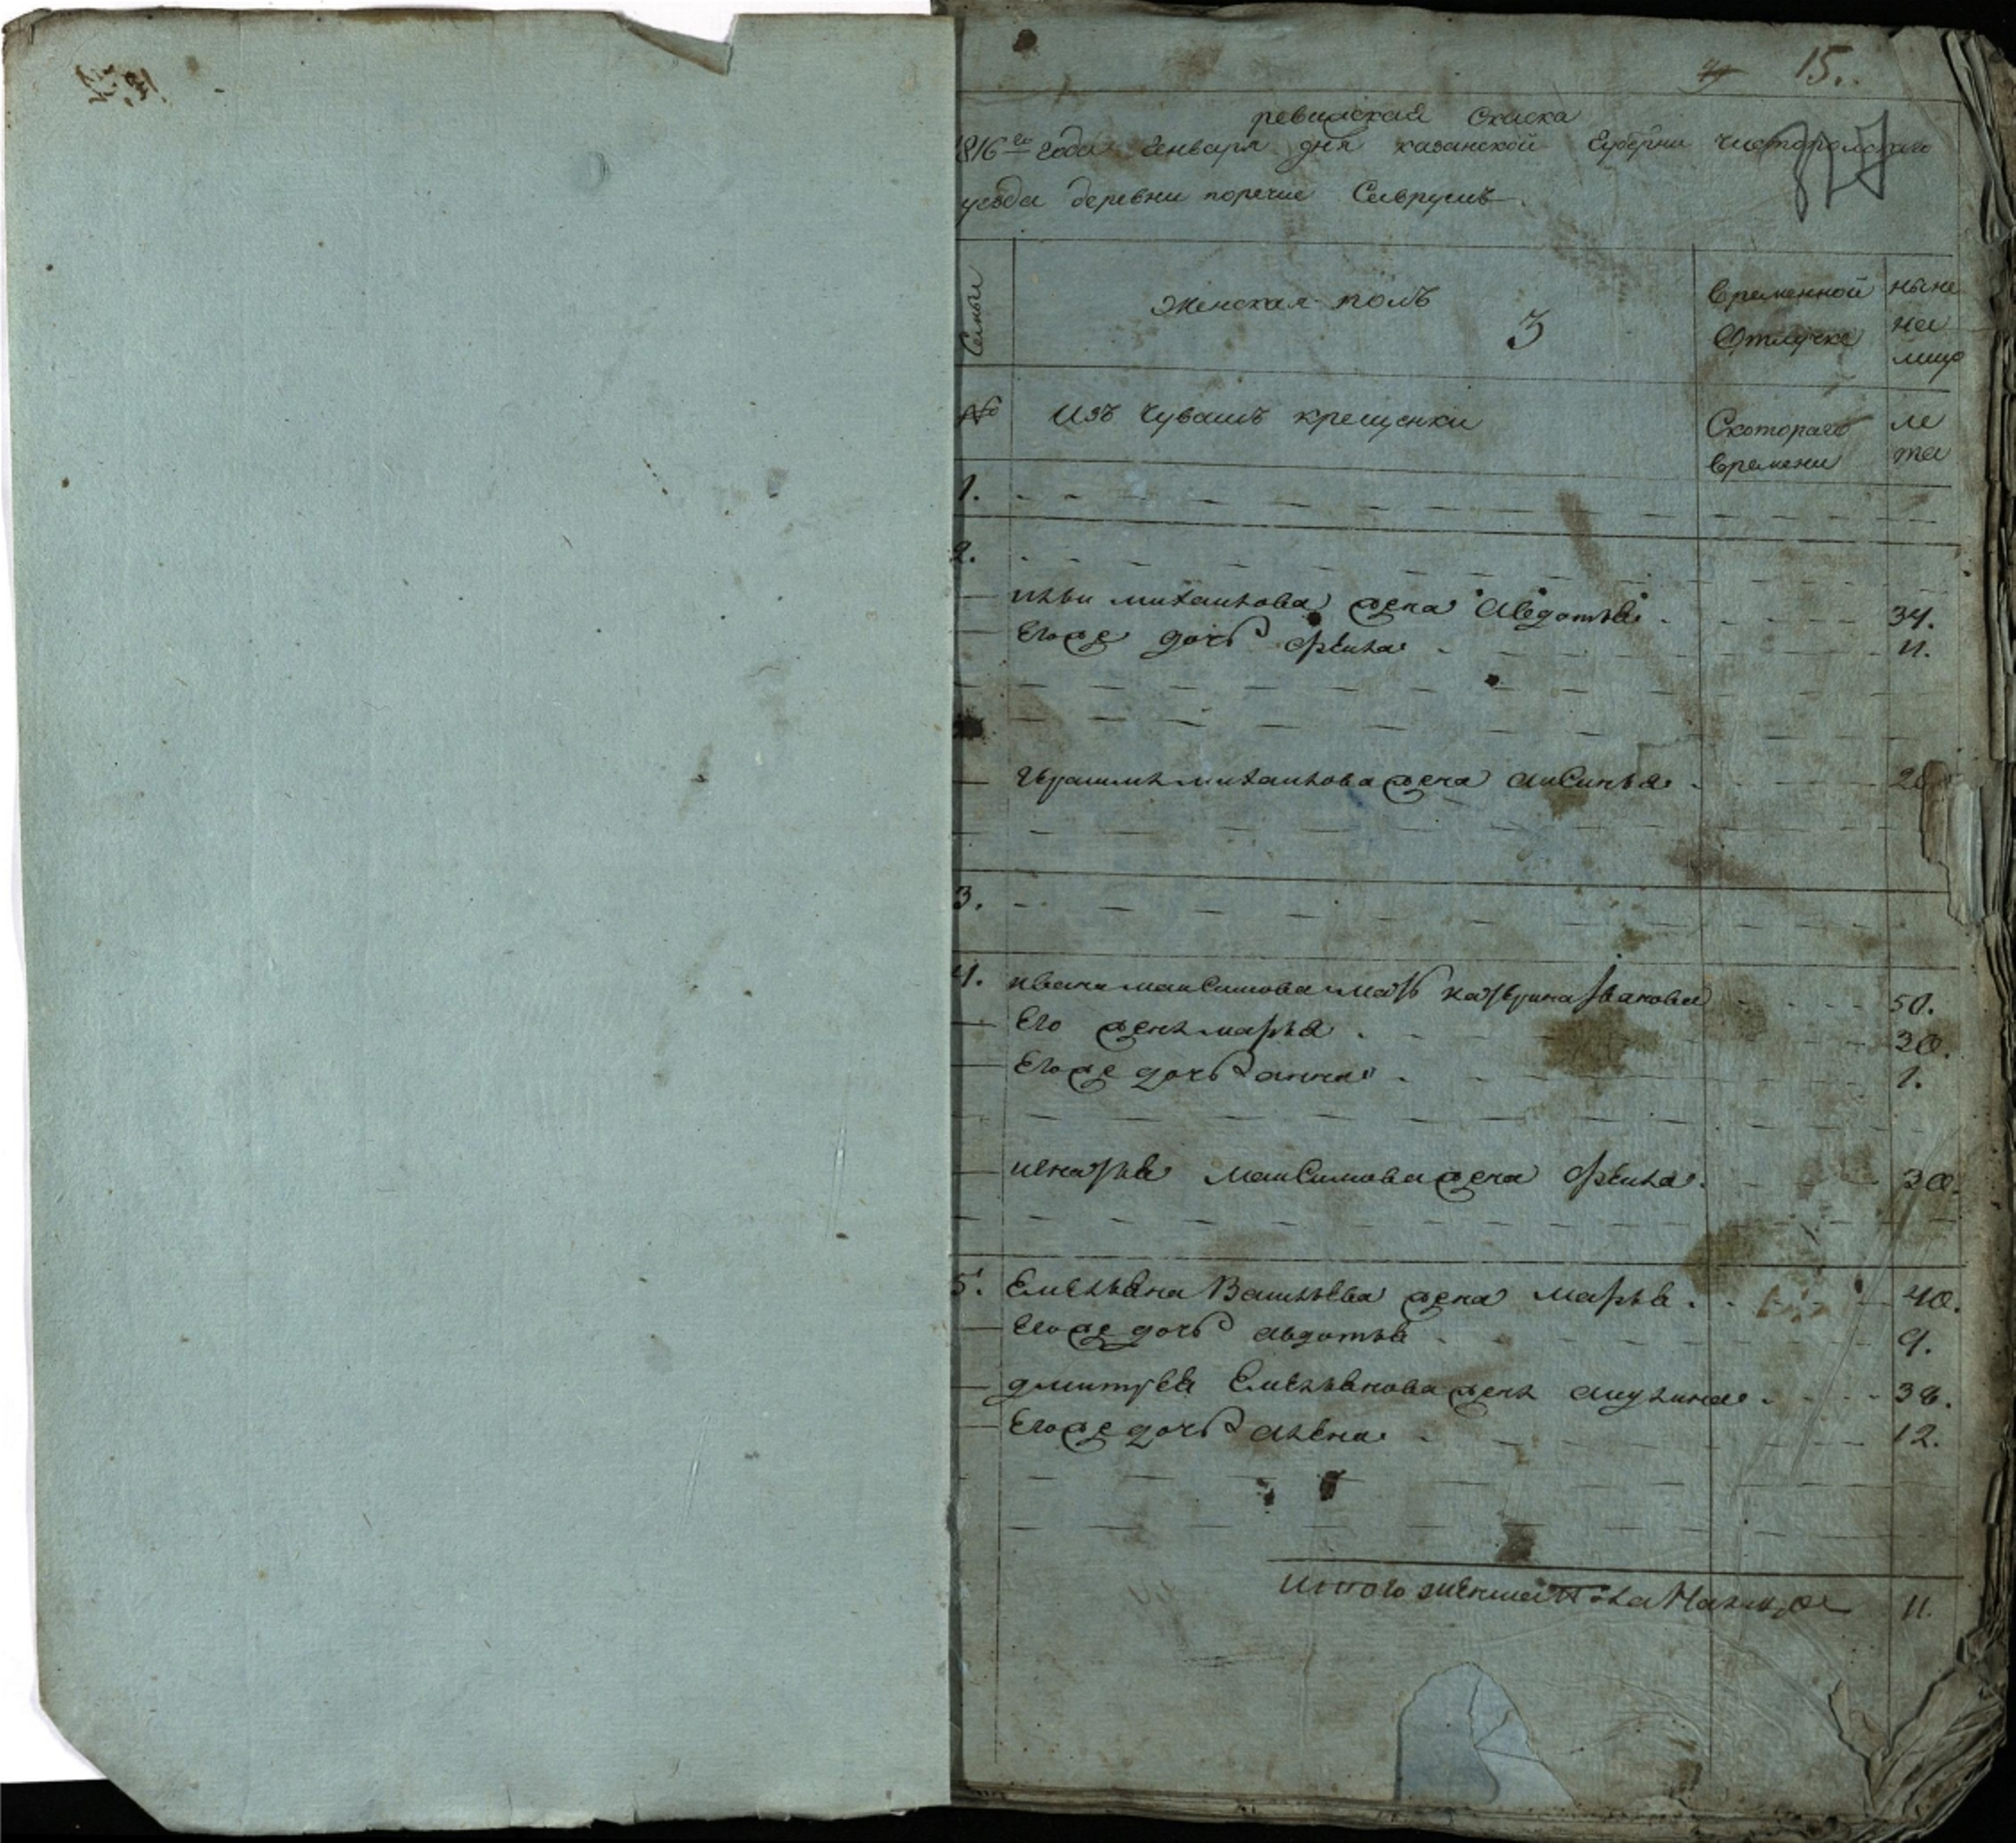 15.
ревизская Скаска
1816го года Генваря дня казанской Губерни чистопольскаго
уезда деревни поречие Саврушъ
Семьи
Женская полъ
3
временной
Отлучке
ныне
на
лицо
№
Изъ Чувашъ крещенки
Скотораго
времени
ле
та
1.
2.
ильи михаилова жена Авдотья 34.
Егоже дочь Орина 11.
михаилова жена аксинья 20
3.
4. ивана максимова мать катерина Иванова 50.
Его жена марья 30.
Егоже дочь анна 1.
игнатья максимова жена Орина 30.
5. Емельяна Васильева жена марья 40.
Егоже дочь авдотья 9.
дмитрея Емельянова жена акулина 38.
Егоже дочь алена 12.
итого женска пола На лицо 11.